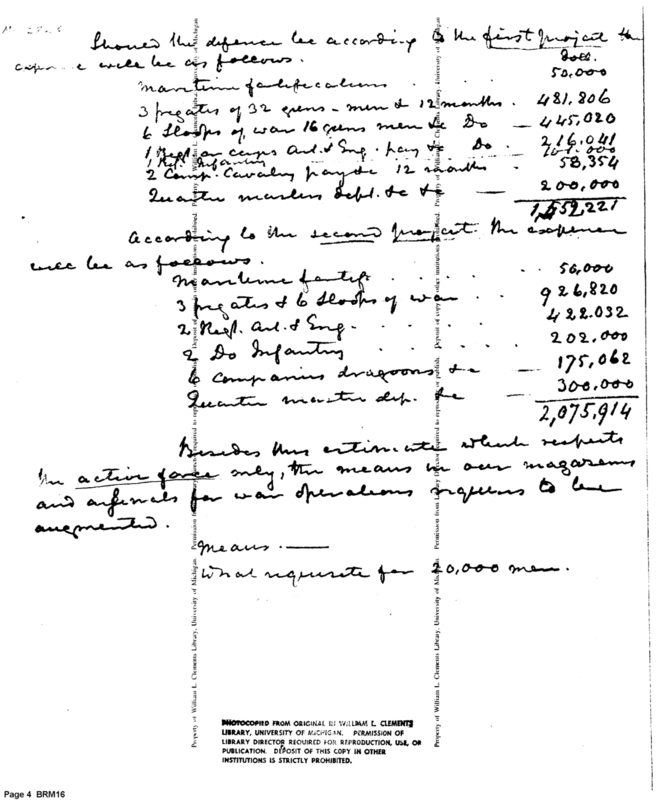 Should the defence be according to the first project the
expence will be as follows.
Doll.
maritime fortifications 50,000
3 frigates of 32 guns - men &c 12 months. 481,806
6 Sloops of war 16 guns men &c Do — 445,020
1 Regt or corps Art. & Eng. pay &c Do. 216,041
1 Regt. Infantry 101.000
2 Comp. Cavalry pay &c 12 months — 58,354
Quarter masters dept. &c &c — 200,000
1,552,221
According to the second project the expence
will be as follows.
Maritime fortif. . . . . 50,000
3 frigates & 6 Sloops of war . . 926,820
2 Regt. Art. & Eng. . . . . 422.032
2 Do Infantry . . . . 202.000
6 Companies dragoons &c — 175,062
Quarter master dep. &c — 300.000
2,075,914
Besides this estimate which respects
the active force only, the means in our magazines
and arsenals for war operations requires to be
augmented.
Means. —
What requisite for 20,000 men.
Property of William L. Clements Library, University of Michigan. Permission of Library Director required to reproduce or publish. Deposit of this copy in other institutions is prohibited.
PHOTOCOPIED FROM ORIGINAL IN WILLIAM L. CLEMENTS
LIBRARY, UNIVERSITY OF MICHIGAN. PERMISSION OF
LIBRARY DIRECTOR REQUIRED FOR REPRODUCTION, USE, OR
PUBLICATION. DEPOSIT OF THIS COPY IN OTHER
INSTITUTIONS IS STRICTLY PROHIBITED.
Page 4 BRM16